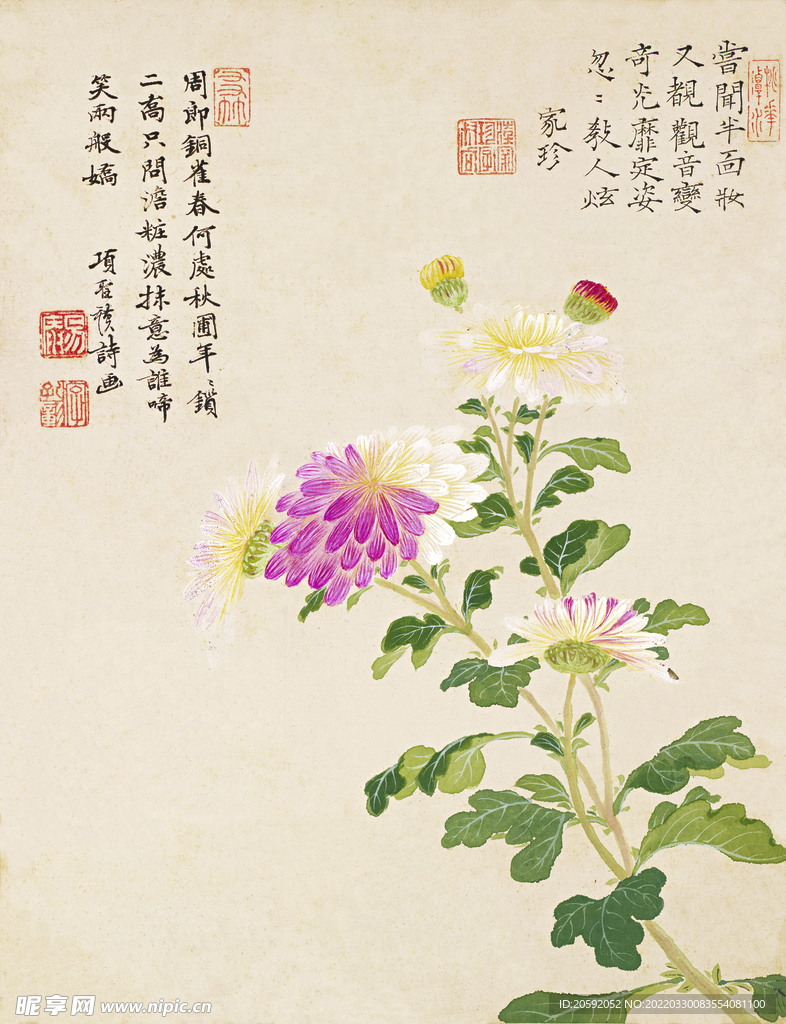 嘗聞半面妝
又覩觀音變
奇光靡定姿
忽〻殺人炫
家珍
周郎銅雀春何處秋圃年〻鎖
二喬只問澹粧濃抹意為誰啼
笑兩般嬌
項聖謨詩画
昵享网 www.nipic.cn
ID:20592052 NO:20220330083554081100